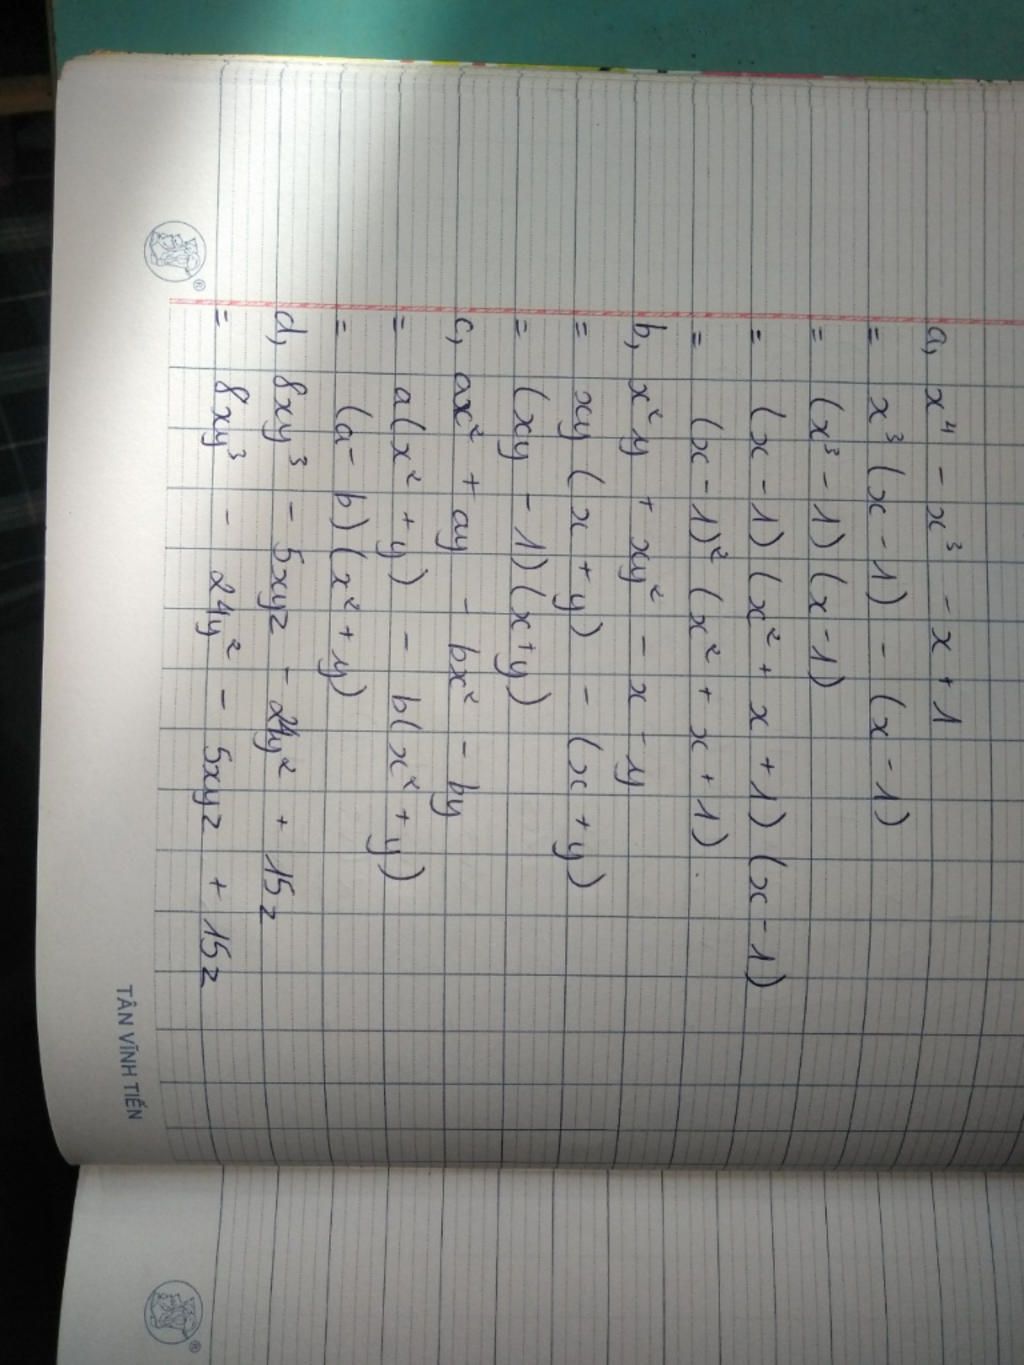 a, x⁴ - x³ - x + 1
= x³ (x - 1) - (x - 1)
= (x³ - 1) (x - 1)
= (x - 1) (x² + x + 1) (x - 1)
= (x - 1)² (x² + x + 1).
b, x²y + xy² - x - y
= xy (x + y) - (x + y)
= (xy - 1) (x + y)
c, ax² + ay - bx² - by
= a(x² + y) - b(x² + y)
= (a - b) (x² + y)
d, 8xy³ - 5xyz - 24y² + 15z
= 8xy³ - 24y² - 5xyz + 15z
TÂN VĨNH TIẾN
®
®